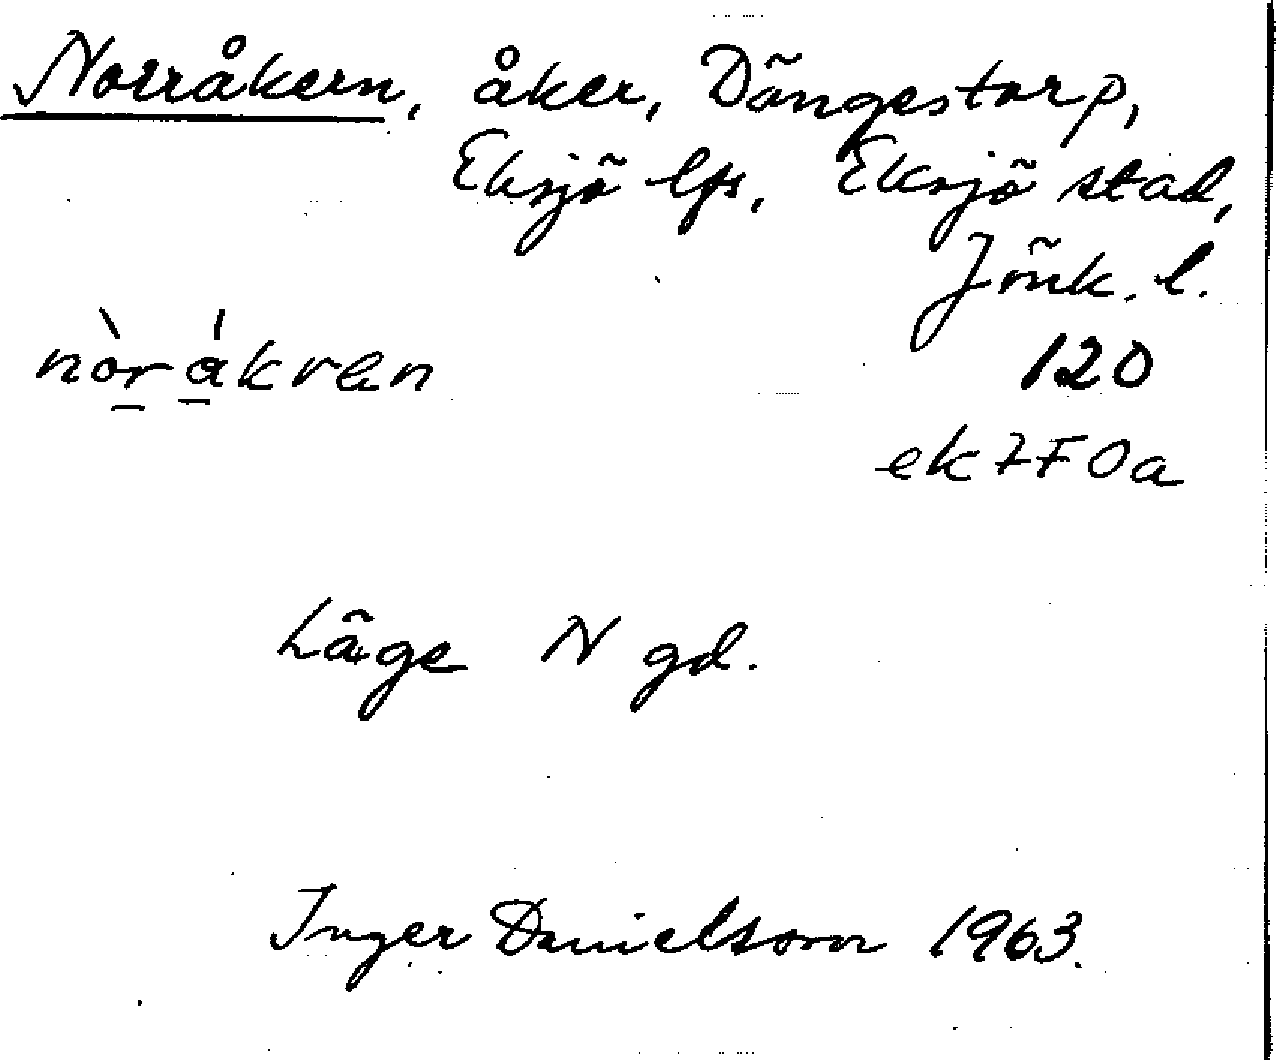 Norråkern, åker, Dängestorp,
Eksjö lfs, Eksjö stad,
Jönk. l.
nòrákren
120
ek 7F0a
Läge N gd.
Inger Danielsson 1963.